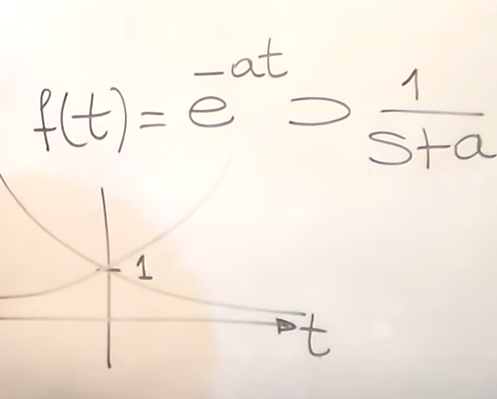 f(t) = e^{-at} ⊃ \frac{1}{s+a}
1
t